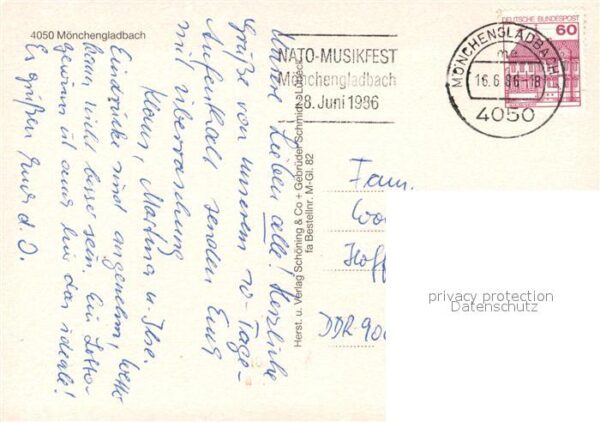 4050 Mönchengladbach
NATO-MUSIKFEST
Mönchengladbach
8. Juni 1986
MÖNCHENGLADBACH
me
16.6.86-18
4050
DEUTSCHE BUNDESPOST
60
Herst. u. Verlag Schöning & Co + Gebrüder Schmidt · Lübeck
fa Bestellnr. M-Gl. 82
Lieben alle! Herzliche
Grüße von unserem 10-Tage-
Aufenthalt senden Euch
mit Überraschung
Klaus, Martina u. Ilse.
Eindrücke sind angenehm, Wetter
kann nicht besser sein. Ein Lotto-
gewinn ist auch hier das ideale!
Es grüßen Euch d. O.
Fam.
DDR 90
privacy protection
Datenschutz